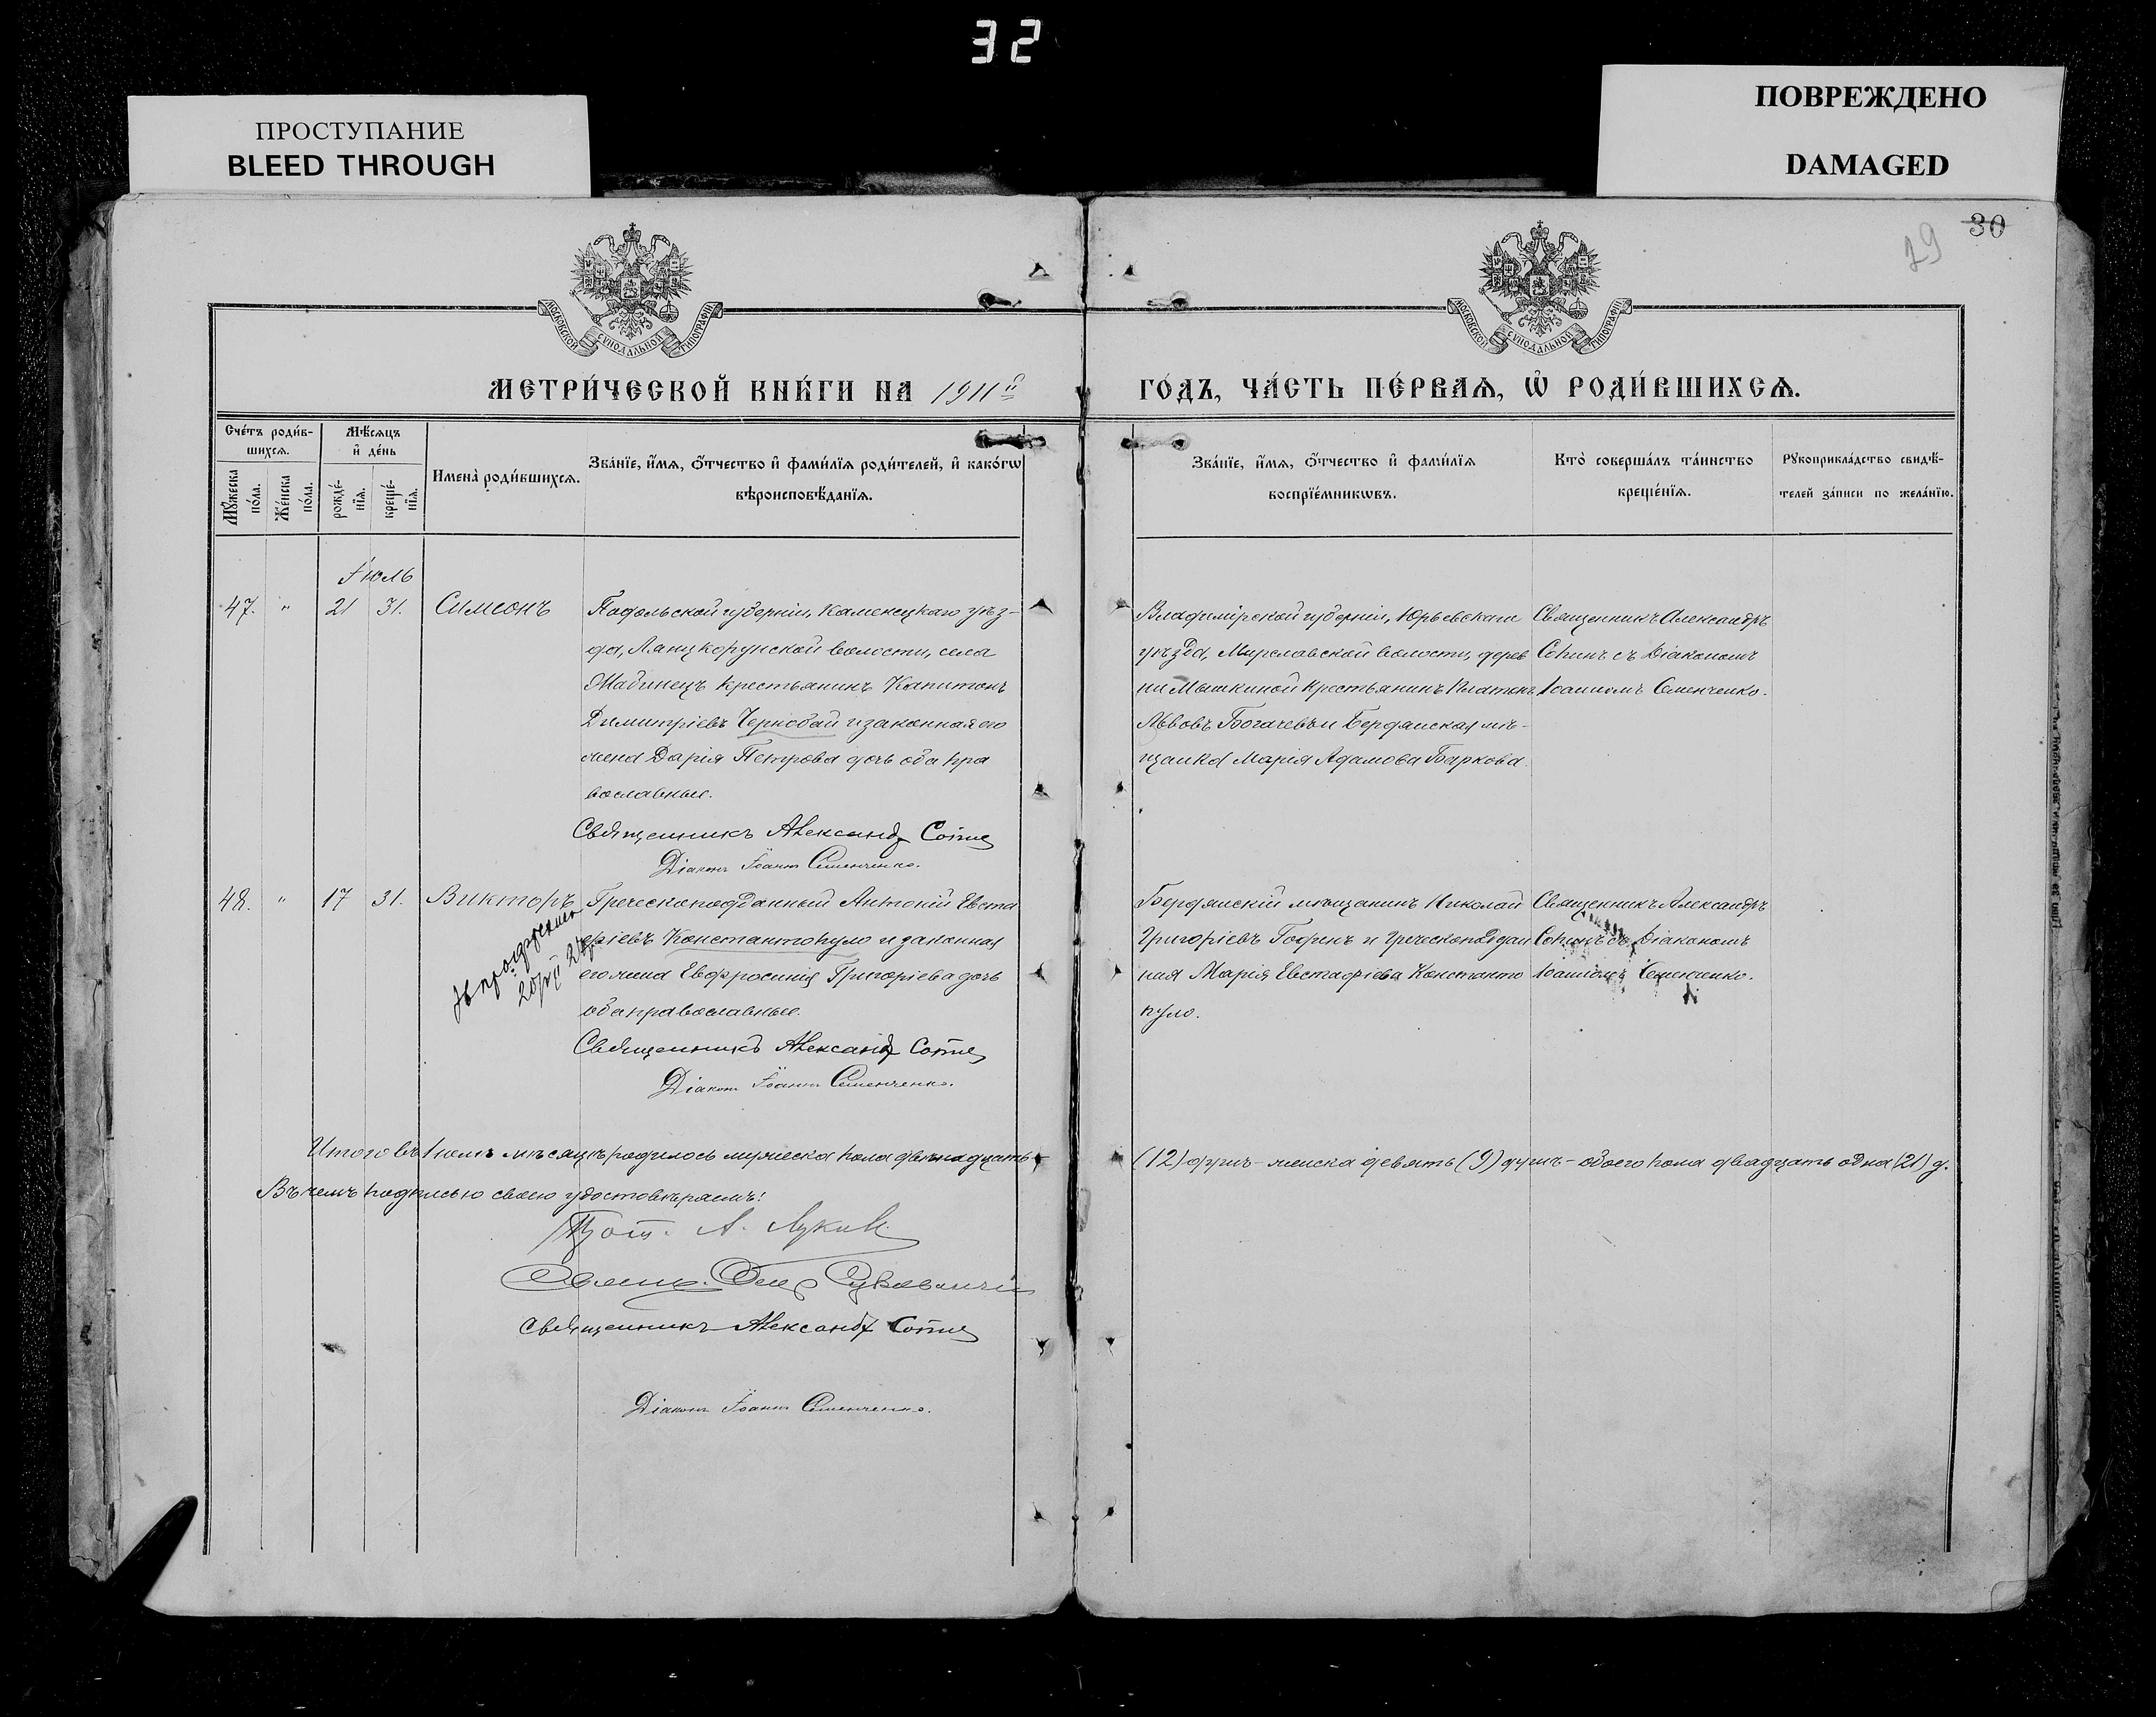 32
ПРОСТУПАНИЕ
BLEED THROUGH
ПОВРЕЖДЕНО
DAMAGED
29
30
МОСКОВСКОЙ СѴНОДАЛЬНОЙ ТИПОГРАФІИ
МОСКОВСКОЙ СѴНОДАЛЬНОЙ ТИПОГРАФІИ
МЕТРИ́ЧЕСКОЙ КНИ́ГИ НА 1911й
ГО́ДЪ, ЧА́СТЬ ПЕ́РВАѦ, Ѡ҆ РОДИ́ВШИХСѦ.
Сче́тъ роди́в-
шихсѧ.
Мꙋ́жеска по́ла.
Же́нска по́ла.
Мѣ́сѧцъ
и҆ де́нь
рожде́-
нїѧ.
креще́-
нїѧ.
Имена̀ роди́вшихсѧ.
Зва́нїе, и҆́мѧ, ѻ҆́тчество и҆ фами́лїѧ роди́телей, и҆ како́гѡ
вѣроисповѣ́данїѧ.
Зва́нїе, и҆́мѧ, ѻ҆́тчество и҆ фами́лїѧ
воспрїе́мникѡвъ.
Кто̀ соверша́лъ та́инство
креще́нїѧ.
Рꙋкоприкла́дство свидѣ́-
телей за́писи по жела́нїю.
Іюль
47. " 21 31. Симеонъ
Подольской губерніи, Каменецкаго уѣз-
да, Ланцкорунской волости, села
крестьянинъ Капитонъ
Димитріевъ Чернобай и законная его
жена Дарія Петрова дочь оба пра
вославные.
Священникъ Александръ Сопинъ
Діаконъ Іоаннъ Семенченко.
Владимірской губерніи, Юрьевскаго
уѣзда, Мирславской волости, дерев
ни Мышкиной крестьянинъ Платонъ
Львовъ Богачевъ и Бердянская мѣ-
щанка Марія Адамова Баркова.
Священникъ Александръ
Сопинъ съ Діакономъ
Іоанномъ Семенченко.
48. " 17 31. Викторъ
Греческоподданный Антоній Евста
фіевъ Константопуло и законная
его жена Евфросинія Григоріева дочь
оба православные.
Священникъ Александръ Сопинъ
Діаконъ Іоаннъ Семенченко.
Бердянскій мѣщанинъ Николай
Григоріевъ и Греческоподдан
ная Марія Евстафіева Константо
пуло.
Священникъ Александръ
Сопинъ съ Діакономъ
Іоанномъ Семенченко.
Итого въ Іюлѣ мѣсяцѣ родилось мужеска пола двѣнадцать
(12) душъ - женска девять (9) душъ - обоего пола двадцать одна (21) д.
Въ чемъ подписью своею удостовѣряемъ:
Прот.
Священникъ Александръ Сопинъ
Діаконъ Іоаннъ Семенченко.